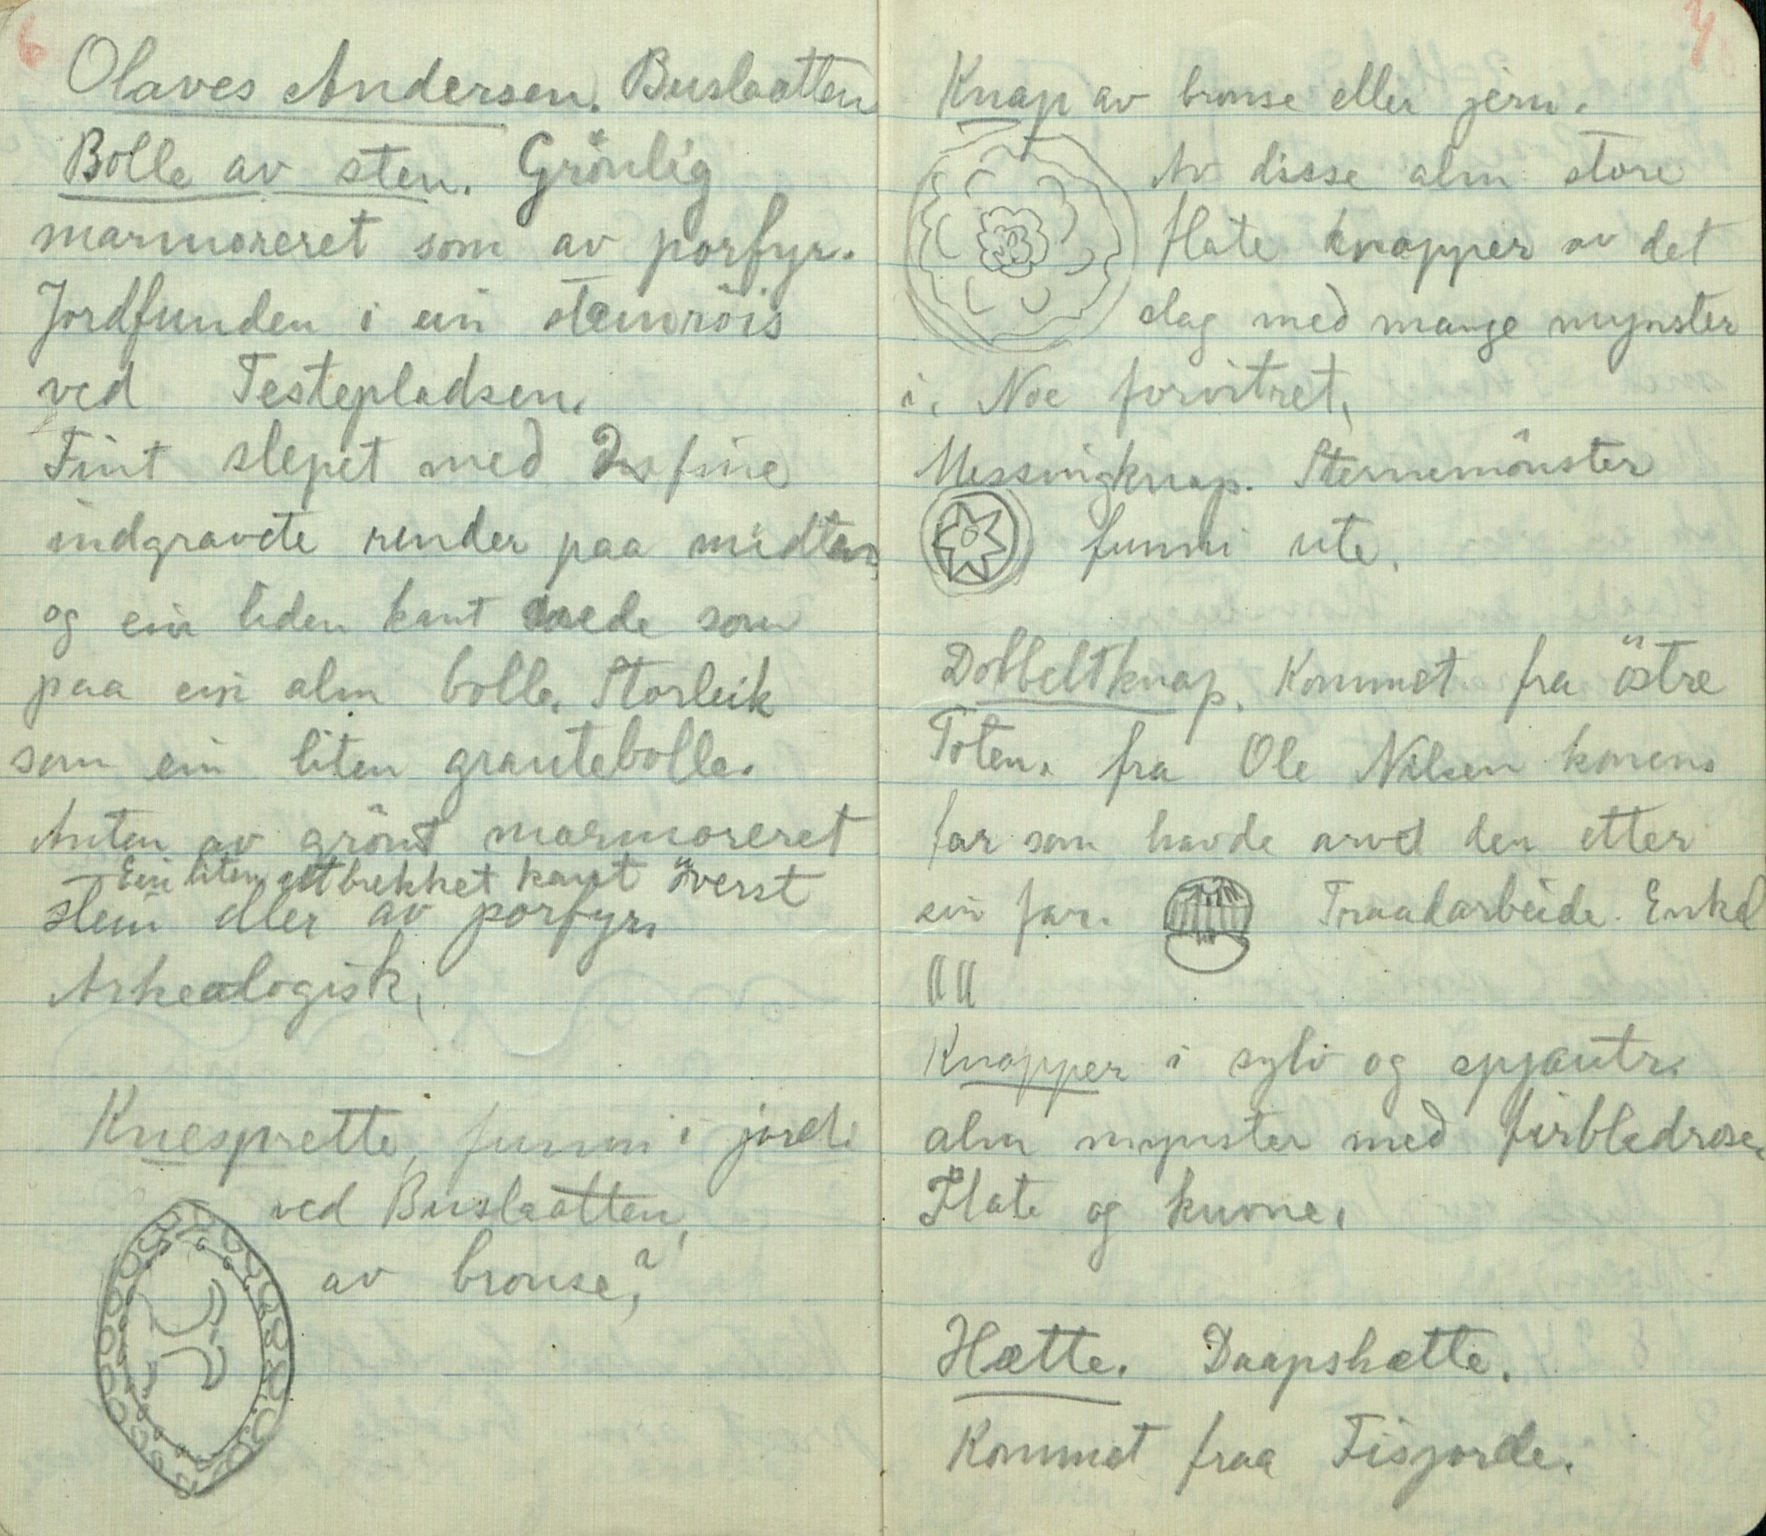 6
Olaves Andersen. Buslaatten
Bolle av sten. Grönlig
marmoreret som av porfyr.
Jordfunden i ein stenröis
ved Testepladsen.
Fint slepet med 2 fine
indgravete render paa midten,
og ein liden kant nede som
paa ein alm bolle. Storleik
som ein liten grautebolle.
Anten av grönt marmoreret
Ein liten utbrekket kant överst
stein eller av porfyr.
Arkeologisk.
Knesprette, funni i jorde
ved Buslaatten,
av bronse?,
7
Knap av bronse eller jern.
Av disse alm store
flate knapper av det
slag med mange mynster
i. Noe forvitret.
Messingknap. Sternemönster
funni ute.
Dobbeltknap. Kommet fra östre
Toten. fra Ole Nilsen konens
far som havde arvet den etter
ein far. Traadarbeide. Enkel
Knapper i sylv og spjautr.
alm mynster med firbledrose.
Flate og kuvne.
Hætte. Daapshætte.
Kommet fraa Fisjorde.